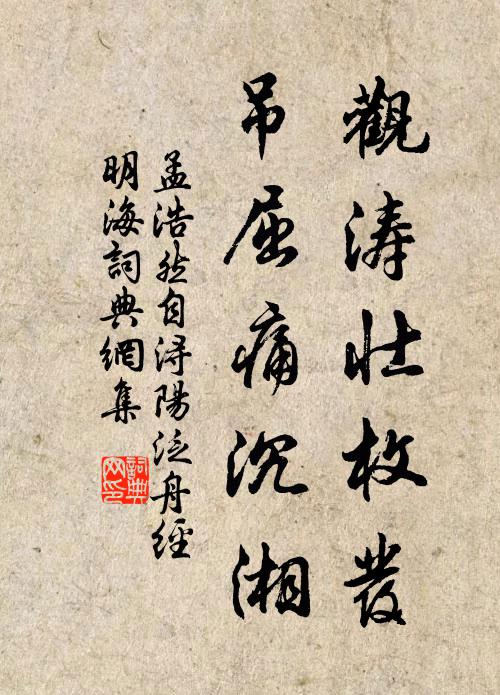 觀涛壯枚發
吊屈痛沉湘
孟浩然自浔陽泛舟經
明海詞典網集
詞典
网印